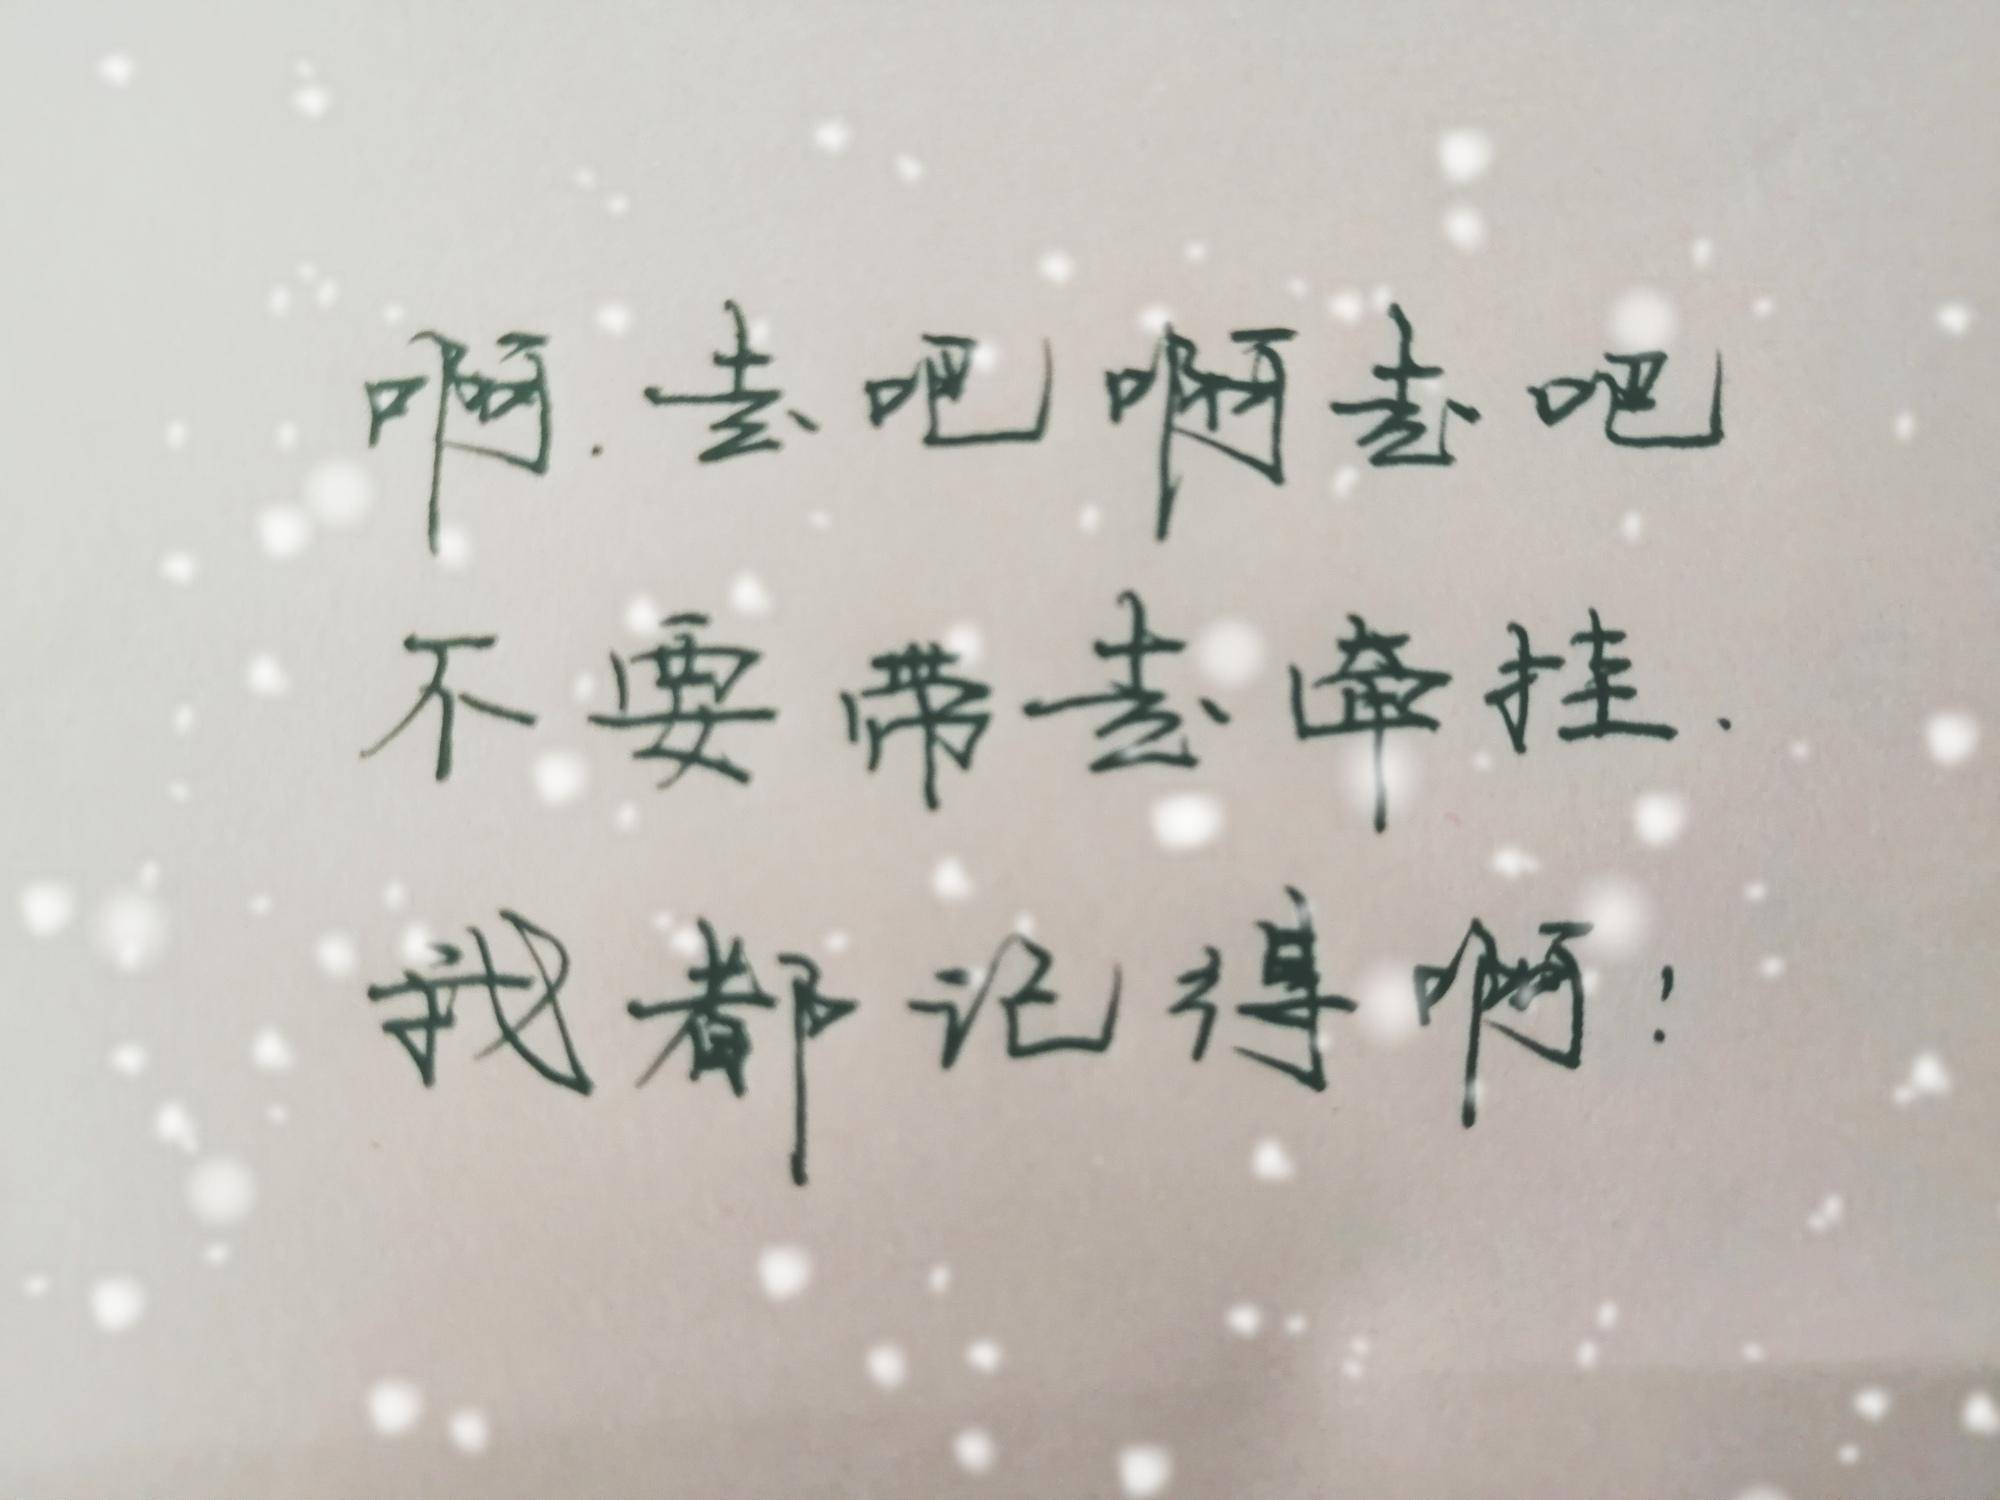 啊.去吧啊去吧
不要带去牵挂.
我都记得啊!